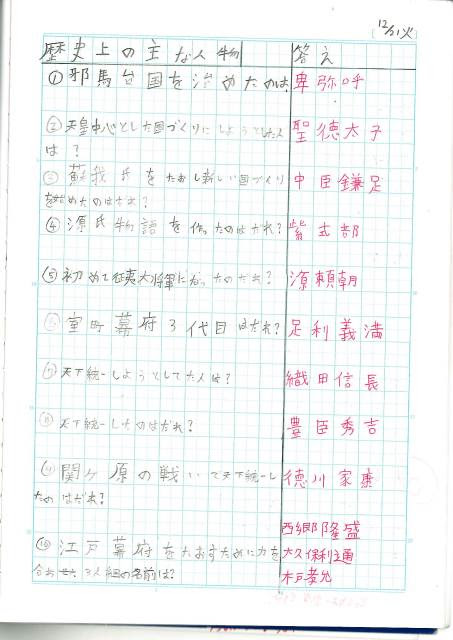 12/21火
歴史上の主な人物 答え
①邪馬台国を治めたのは、 卑弥呼
②天皇中心とした国づくりにしようとした人 聖徳太子
は?
③蘇我氏をたおし新しい国づくり 中臣鎌足
を始めたのはだれ?
④源氏物語を作ったのはだれ? 紫式部
⑤初めて征夷大将軍になったのだれ? 源頼朝
⑥室町幕府3代目はだれ? 足利義満
⑦天下統一しようとしてた人は? 織田信長
⑧天下統一したのはだれ? 豊臣秀吉
⑨関ヶ原の戦いで天下統一し 徳川家康
たのはだれ?
西郷隆盛
⑩江戸幕府をたおすために力を 大久保利通
合わせた3人組の名前は? 木戸孝允